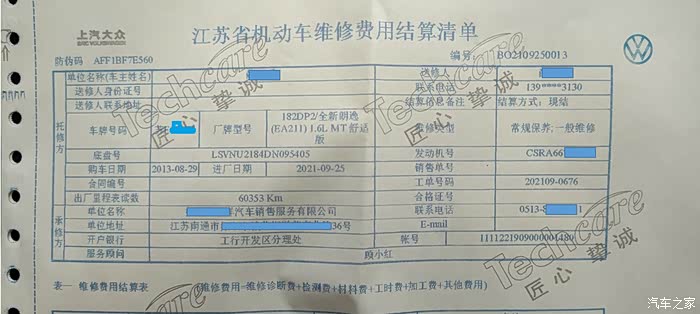 上汽大众
SAIC VOLKSWAGEN
江苏省机动车维修费用结算清单
防伪码 AFF1BF7E560
编号: BO2109250013
单位名称(车主姓名) 送修人
送修人身份证号 联系电话 139****3130
送修人联系地址 结算信息备注 结算方式:现结
托修方
车牌号码 厂牌型号 182DP2/全新朗逸(EA211) 1.6L MT 舒适版 维修类型 常规保养;一般维修
底盘号 LSVNU2184DN095405 发动机号 CSRA66
购车日期 2013-08-29 进厂日期 2021-09-25 销售单号
合同编号 工单号码 202109-0676
出厂里程表读数 60353 Km 合格证号
承修方
单位名称 汽车销售服务有限公司 联系电话 0513-8 1
单位地址 江苏南通市 36号 E-mail
开户银行 工行开发区分理处 帐号 1111221909000004480
服务顾问 顾小红
表一 维修费用结算表 (维修费用=维修诊断费+检测费+材料费+工时费+加工费+其他费用)
Techcare
匠心挚诚
Techcare
匠心挚诚
Techcare
匠心挚诚
Techcare
汽车之家